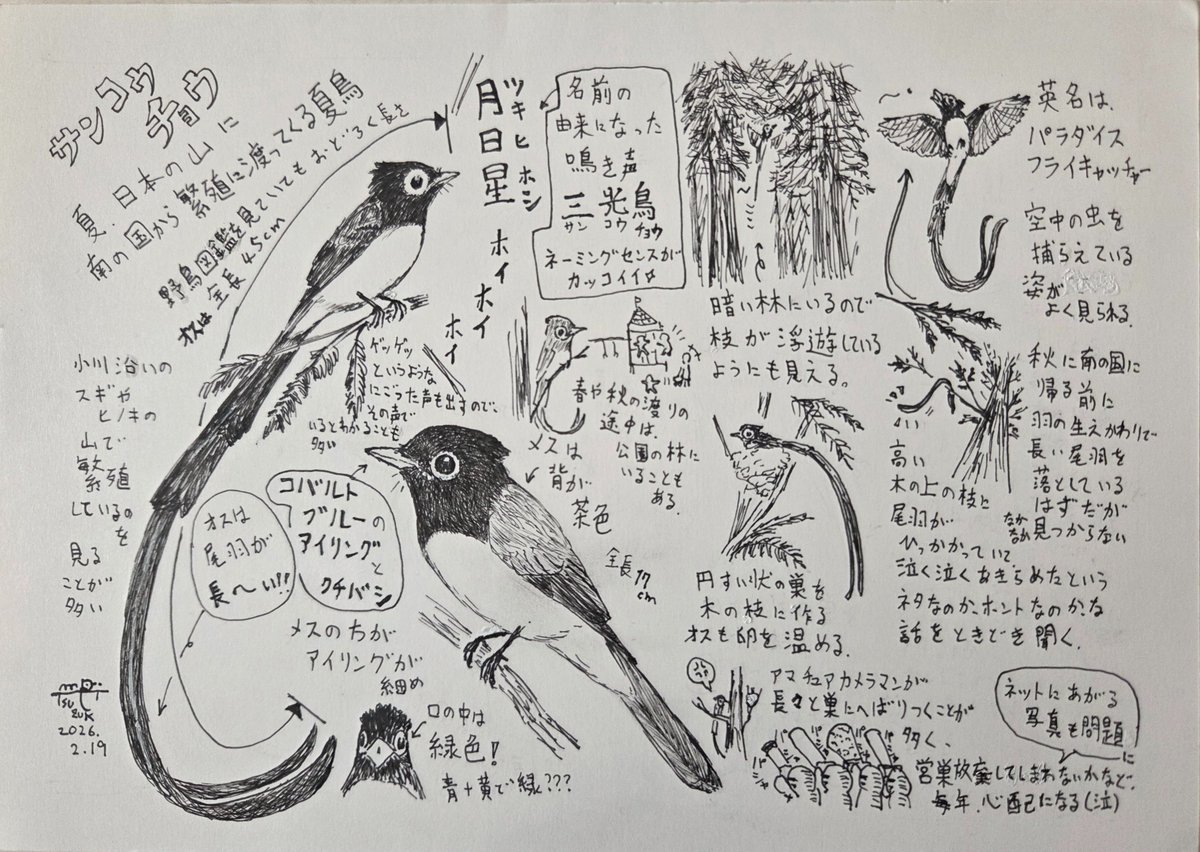 サンコウ
チョウ
夏、日本の山に
南の国から繁殖に渡ってくる夏鳥
野鳥図鑑を見ていてもおどろく長さ
オスは全長45cm
月日星
ツキヒホシ
ホイホイ
ホイ
名前の
由来になった
鳴き声
三光鳥
サンコウチョウ
ネーミングセンスが
カッコイイ☆
暗い林にいるので
枝が浮遊している
ようにも見える。
英名は、
パラダイス
フライキャッチャー
空中の虫を
捕らえている
姿が
よく見られる。
小川沿いの
スギや
ヒノキの
山で
繁殖
しているの
を
見る
ことが
多い
ゲッゲッ
というような
にごった声も出すので、
その声で
いるとわかることも
多い
春や秋の渡りの
途中は、
公園の林に
いることも
ある。
メスは
背が
茶色
全長17cm
オスは
尾羽が
長〜い!!
コバルト
ブルーの
アイリングと
クチバシ
メスの方が
アイリングが
細め
口の中は
緑色!
青+黄で緑???
円すい状の巣を
木の枝に作る
オスも卵を温める。
秋に南の国に
帰る前に
羽の生えかわりで
長い尾羽を
落としている
はずだが
なかなか見つからない
高い
木の上の枝に
尾羽が
ひっかかっていて
泣く泣くあきらめたという
ネタなのか、ホントなのか、な
話をときどき聞く。
アマチュアカメラマンが
長々と巣にへばりつくことが
多く、
営巣放棄してしまわないかなど、
毎年、心配になる(泣)
ネットにあがる
写真も問題
に
2026.
2.19